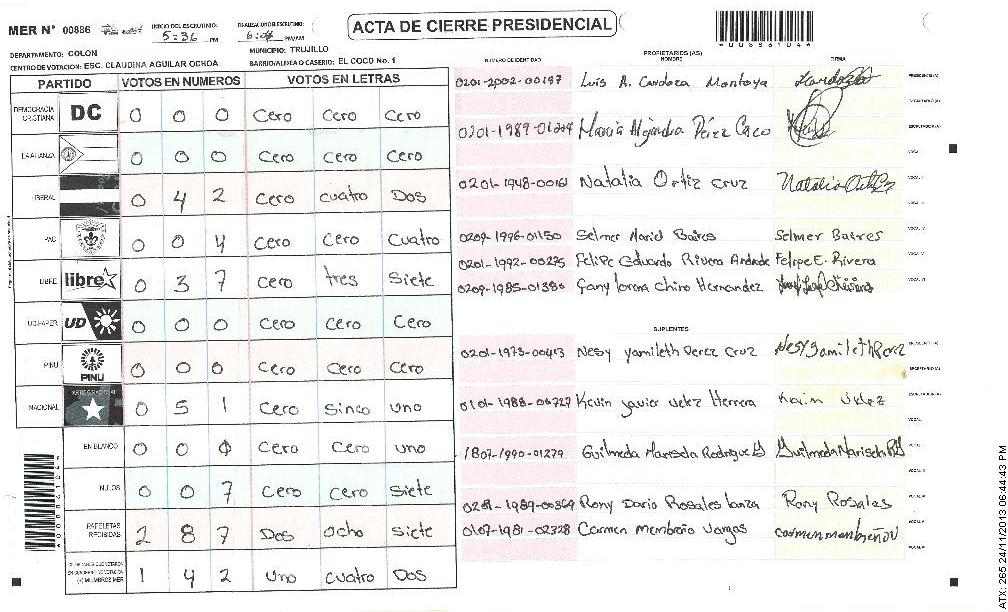 MER N° 00886 INICIO DEL ESCRUTINIO: 5:36 PM FINALIZACION DEL ESCRUTINIO: PM/AM ACTA DE CIERRE PRESIDENCIAL
DEPARTAMENTO: COLON MUNICIPIO: TRUJILLO
CENTRO DE VOTACION: ESC. CLAUDINA AGUILAR OCHOA BARRIO/ALDEA O CASERIO: EL COCO No. 1
PARTIDO VOTOS EN NUMEROS VOTOS EN LETRAS
DEMOCRACIA CRISTIANA DC 0 0 0 Cero Cero Cero
LA ALIANZA 0 0 0 Cero Cero Cero
LIBERAL 0 4 2 Cero cuatro Dos
PAC 0 0 4 Cero Cero Cuatro
LIBRE libre 0 3 7 Cero tres Siete
UD-FAPER UD 0 0 0 Cero Cero Cero
PINU PINU 0 0 0 Cero Cero Cero
NACIONAL 0 5 1 Cero Sinco uno
EN BLANCO 0 0 Cero Cero uno
NULOS 0 0 7 Cero Cero Siete
PAPELETAS RECIBIDAS 2 8 7 Dos ocho siete
(+) MIEMBROS MER 1 4 2 uno cuatro Dos
NUMERO DE IDENTIDAD PROPIETARIOS (AS) NOMBRE FIRMA
0201-2002-00197 Luis A. Cardoza Montoya PRESIDENTE(A)
SECRETARIO(A)
Maria Alejandra Pérez Caco ESCRUTADOR(A)
VOCAL I
0201-1948-00161 Natalia Ortiz Cruz Natalia Ortiz
0209-1996-01150 Selmer Mariel Baires Selmer Baires
0201-1992-00275 Felipe Eduardo Rivera Andrade Felipe E. Rivera
0209-1985-01380 Gany lorena Chirro Hernandez
SUPLENTES
0201-1973-00413 Nesy yamileth Perez Cruz Nesy Yamileth Perez
SECRETARIO(A)
0101-1988-00727 Kevin Javier Velez Herrera Kevin Velez
1807-1990-01279 Guilmeda Marisela Rodriguez
0201-1989-00369 Rony Dario Rosales Lanza Rony Rosales
0107-1981-02328 Carmen Membreño Vargas carmen membreño V
ATX: 265 24/11/2013 06:44:43 PM